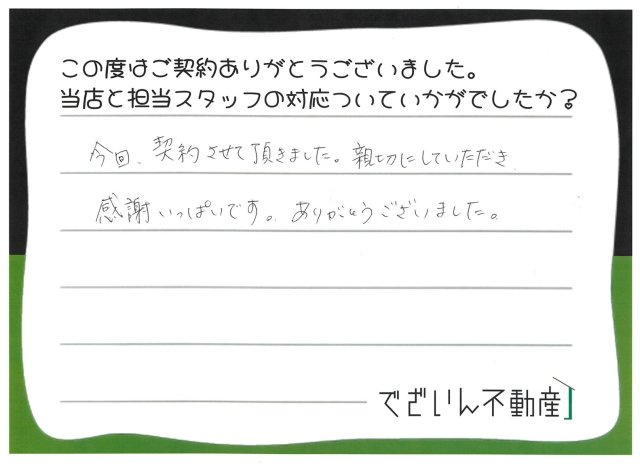 この度はご契約ありがとうございました。
当店と担当スタッフの対応ついていかがでしたか?
今回、契約させて頂きました。親切にしていただき
感謝いっぱいです。ありがとうございました。
でざいん不動産